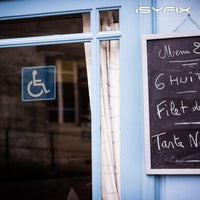 iSYFIX
Menu
6 HUIT
Filet de
Tarte